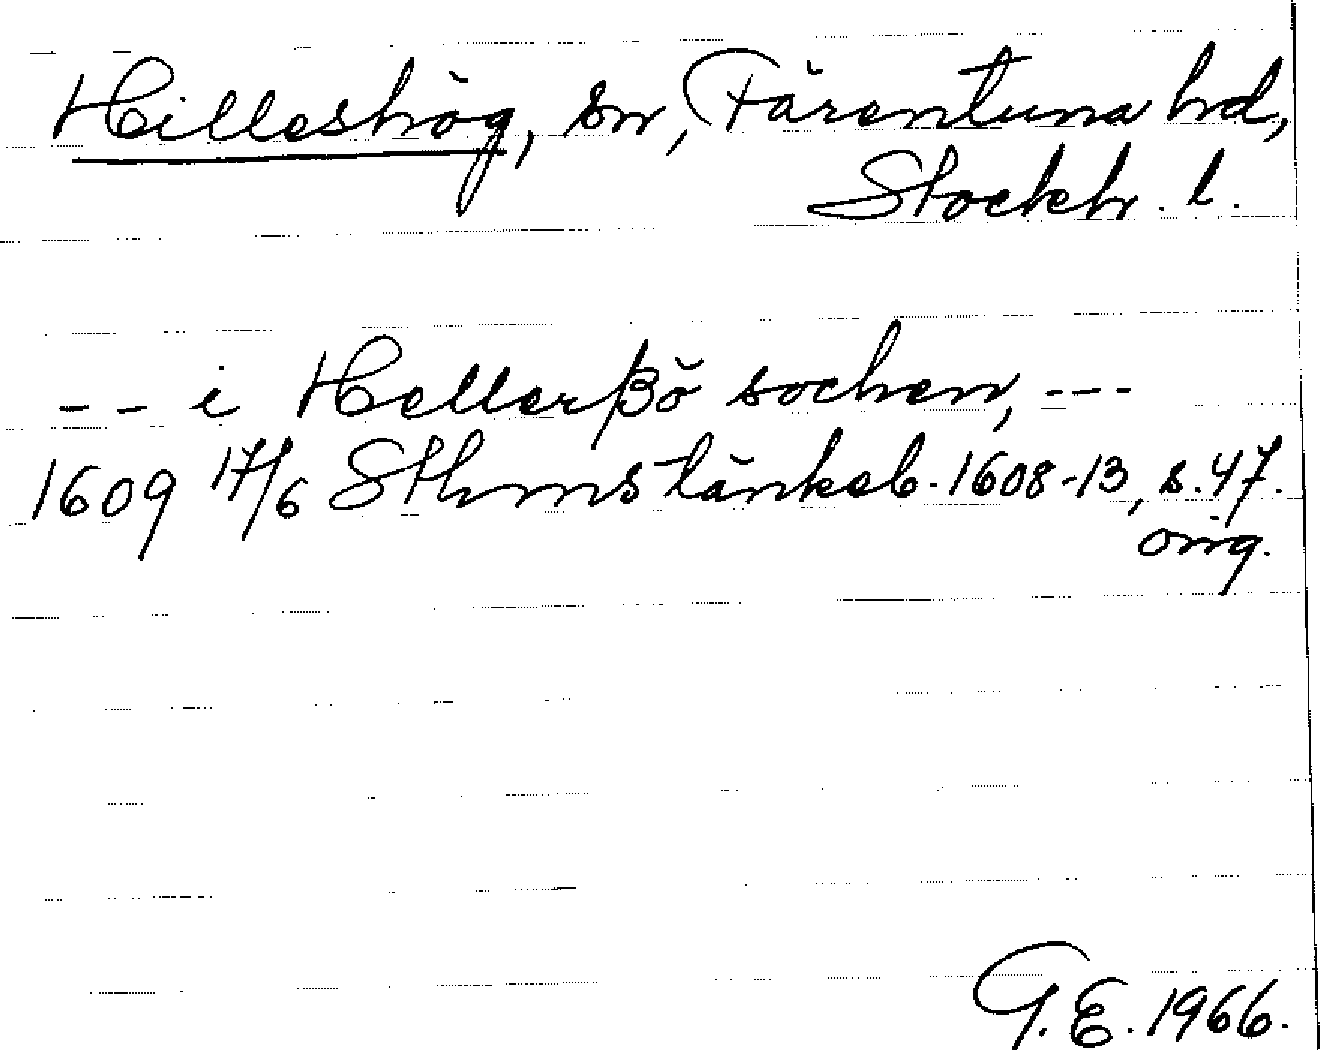 Hilleshög, sn, Färentuna hd,
Stockh. l.
-- i Hellerßö sochen, ---
1609 17/6 Sthms tänkeb. 1608-13, s. 47.
orig.
G. E. 1966.